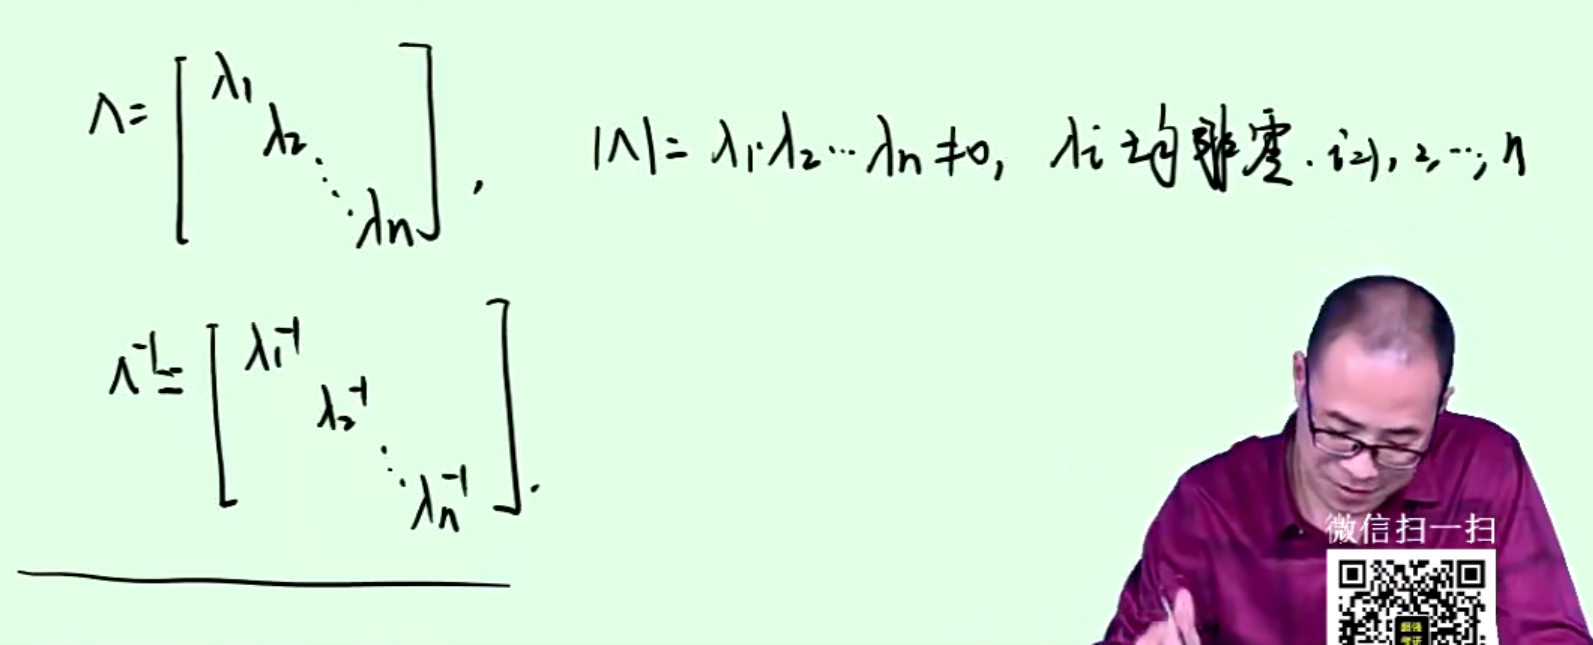 Λ = [ λ₁ λ₂ ⋱ λn ] , |Λ| = λ₁·λ₂…λn ≠ 0, λi 均非零. i=1, 2, …, n
Λ⁻¹ = [ λ₁⁻¹ λ₂⁻¹ ⋱ λn⁻¹ ] .
微信扫一扫